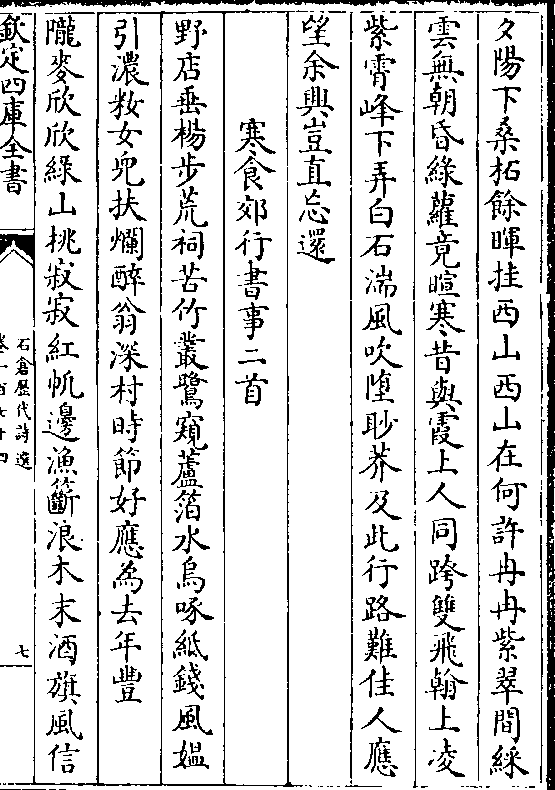 夕陽下桑柘餘暉挂西山西山在何許冉冉紫翠間綵
雲無朝昏綠蘿竟暄寒昔與霞上人同跨雙飛翰上凌
紫霄峰下弄白石湍風吹墮眇莽及此行路難佳人應
望余興豈直忘還
寒食郊行書事二首
野店垂楊步荒祠苦竹叢鷺窺蘆箔水烏啄紙錢風媪
引濃粧女兒扶爛醉翁深村時節好應為去年豐
隴麥欣欣綠山桃寂寂紅帆邊漁𥴈浪木末酒旗風信
欽定四庫全書
石倉歷代詩選
卷一百七十四
七